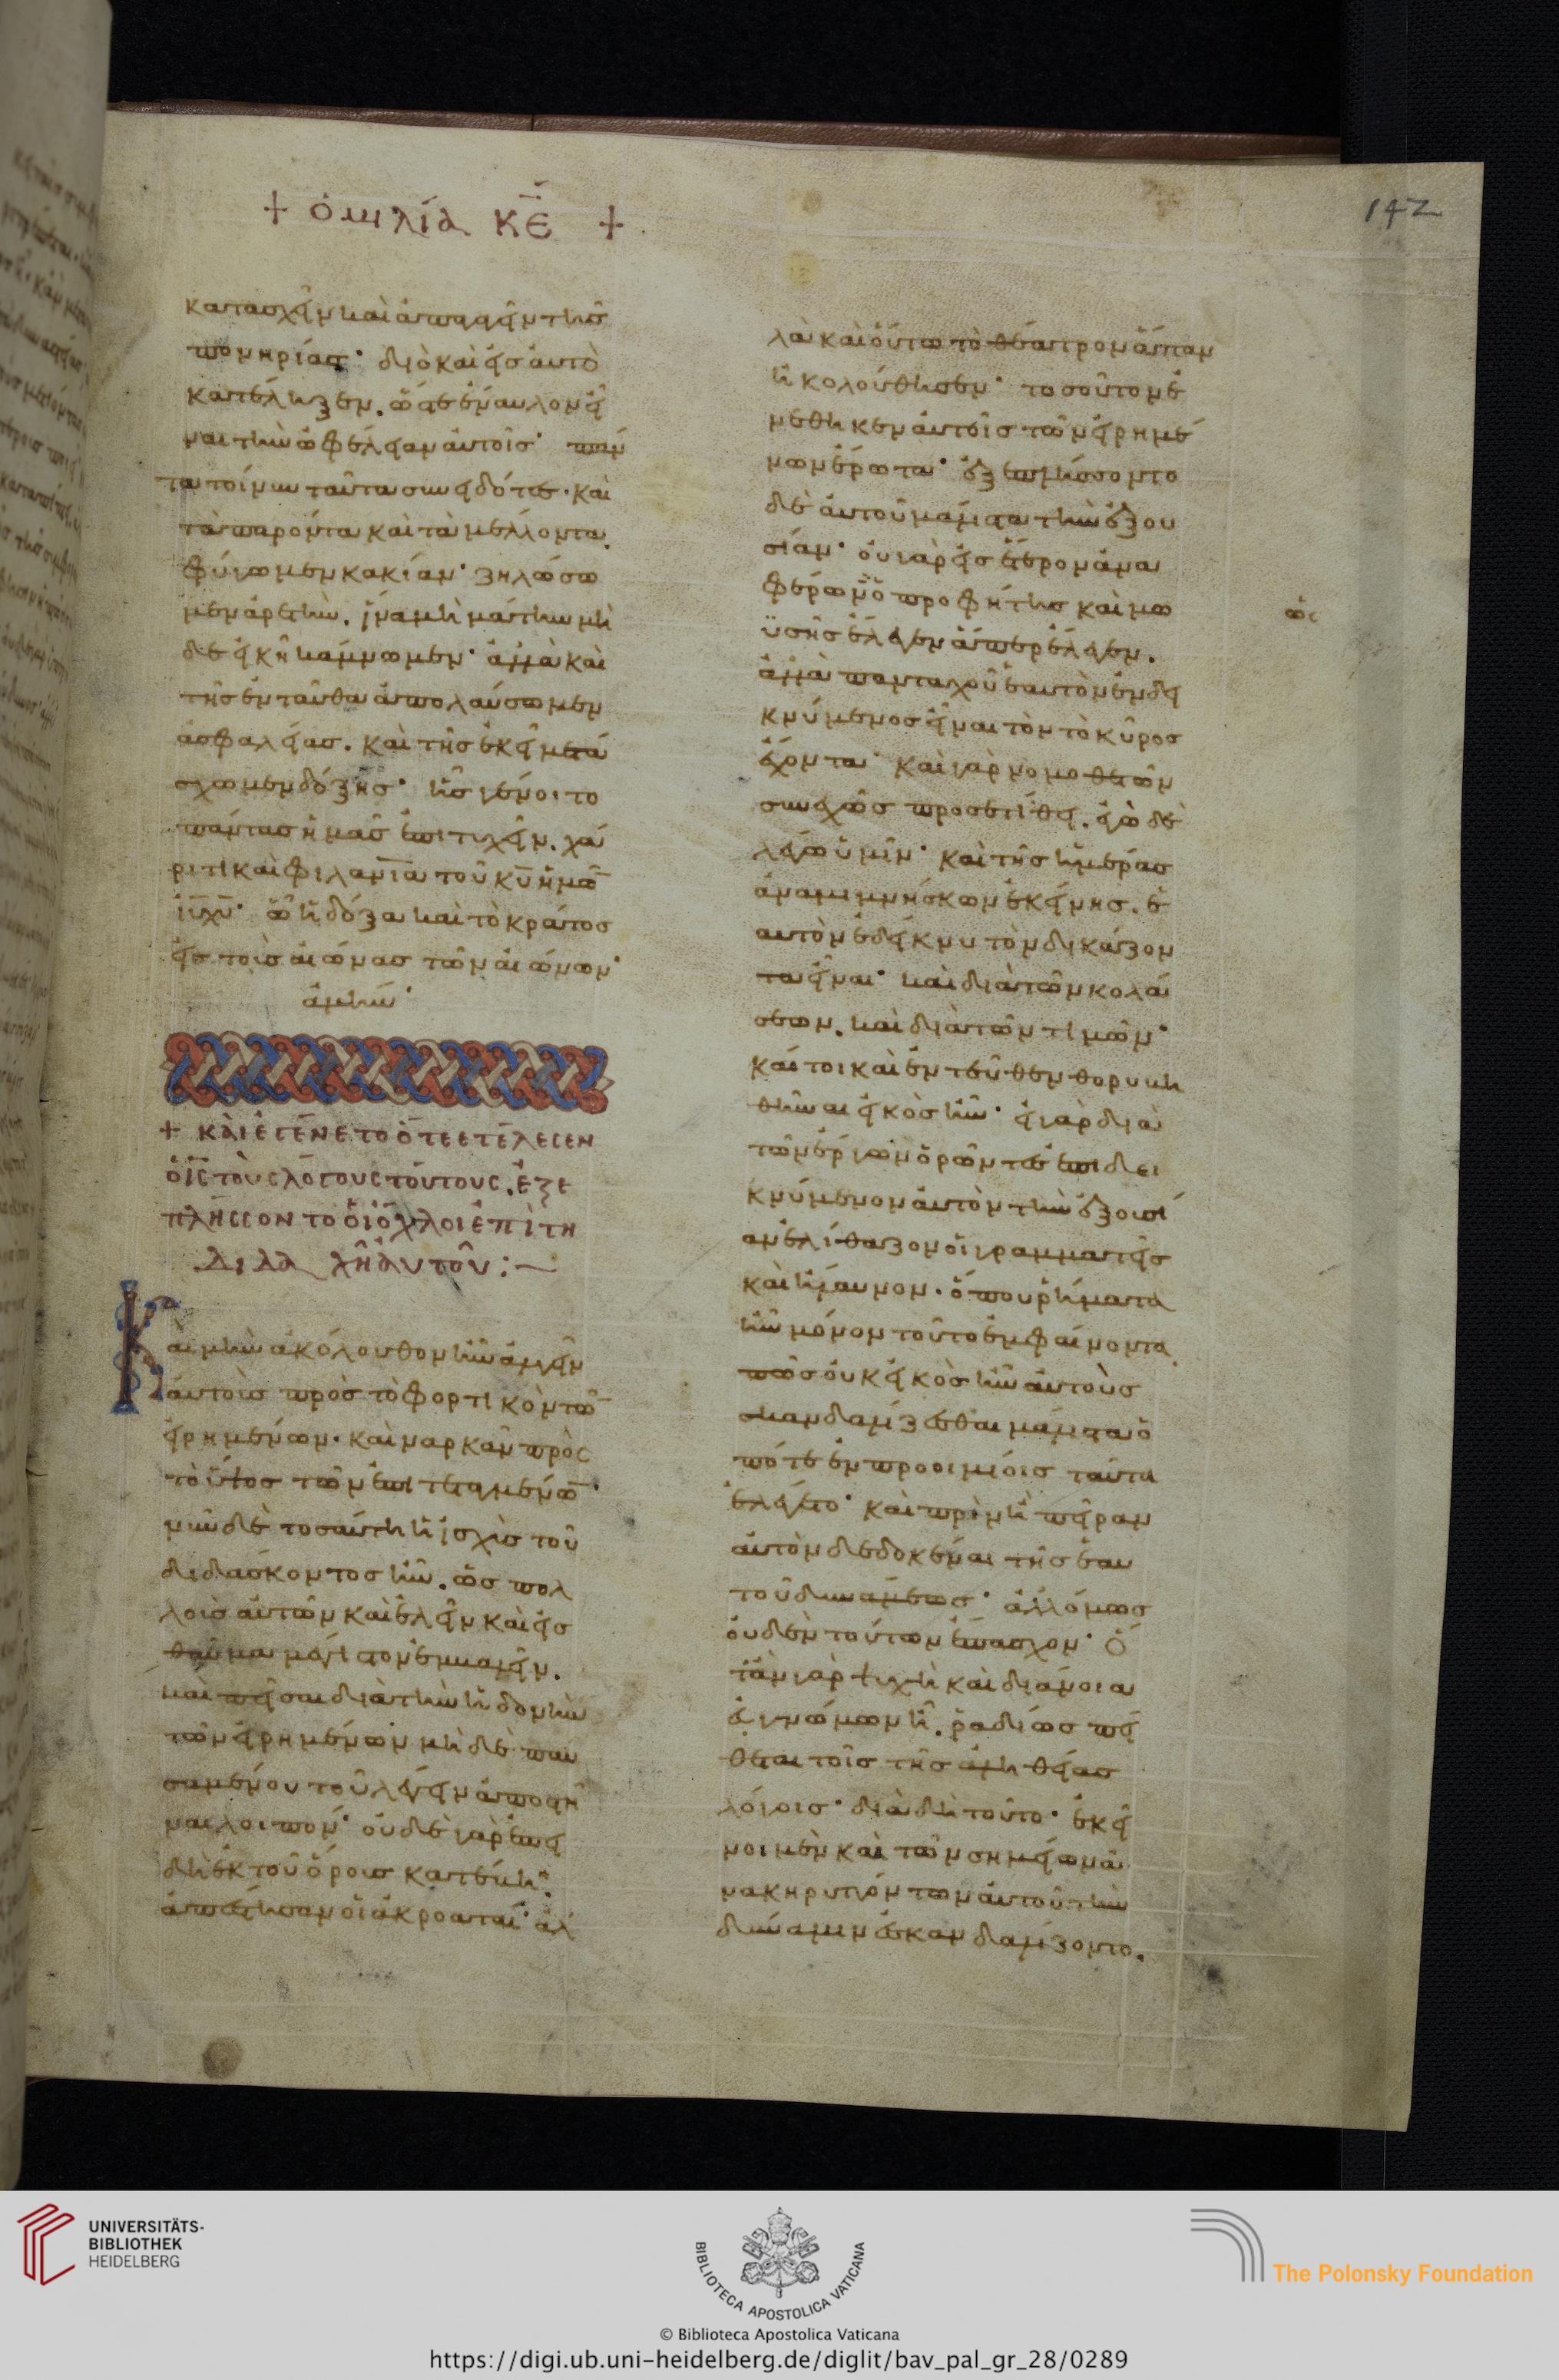 + ὁμιλία ΚΕ +
142
κατασχεῖν καὶ ἀπαγαγεῖν τῆς
πονηρίας· διὸ καὶ εἰς αὐτὸ
κατέληξεν. ὥστε ἔναυλον εἶ
ναι τὴν ὠφέλειαν αὐτοῖς· πάν
τα τοίνυν ταῦτα συνειδότες· καὶ
τὰ παρόντα καὶ τὰ μέλλοντα.
φύγωμεν κακίαν· ζηλώσω
μεν ἀρετὴν. ἵνα μὴ μάτην μὴ
δὲ εἰκῆ κάμνωμεν· ἀλλὰ καὶ
τῆς ἐνταῦθα ἀπολαύσωμεν
ἀσφαλείας. καὶ τῆς ἐκεῖ μετά
σχωμεν δόξης· ἧς γένοιτο
πάντας ἡμᾶς ἐπιτυχεῖν. χά
ριτι καὶ φιλανΐα τοῦ κυ ἡμῶ
ιυ χυ· ὧ ἡ δόξα καὶ τὸ κράτος
εἰς τοὺς αἰῶνας τῶν αἰώνων·
ἀμήν·
+ ΚΑΙ ΕΓΕΝΕΤΟ ΟΤΕ ΕΤΕΛΕCΕΝ
Ο ΙC ΤΟΥC ΛΟΓΟΥC ΤΟΥΤΟΥC. ΕΞΕ
ΠΛΗCCΟΝΤΟ ΟΙ ΟΧΛΟΙ ΕΠΙ ΤΗ
ΔΙΔΑΧΗ ΑΥΤΟΥ:—
Καὶ μὴν ἀκόλουθον ἦν ἀλγεῖν
αὐτοὺς πρὸς τὸ φορτικὸν τῶ
εἰρημένων. καὶ ναρκᾶν πρὸς
τὸ ὕψος τῶν ἐπιτεταγμένω·
νῦν δὲ τοσαύτη ἡ ἰσχὺς τοῦ
διδάσκοντος ἦν. ὡς πολ
λοὺς αὐτῶν καὶ ἑλεῖν καὶ εἰς
θαῦμα μέγιστον ἐμβαλεῖν.
καὶ πεῖσαι διὰ τὴν ἡδονὴν
τῶν εἰρημένων μὴ δὲ παυ
σαμένου τοῦ λέγειν ἀποστῆ
ναι λοιπόν· οὐδὲ γὰρ ἐπει
δὴ ἐκ τοῦ ὄρους κατέβη.
ἀπέστησαν οἱ ἀκροαταί· ἀλ
λὰ καὶ οὕτω τὸ θέατρον ἅπαν
ἠκολούθησεν· τοσοῦτον ἐ
νέθηκεν αὐτοῖς τῶν εἰρημέ
νων ἔρωτα· ἐξεπλήσσοντο
δὲ αὐτοῦ μάλιστα τὴν ἐξου
σίαν· οὐ γὰρ εἰς ἕτερον ἀνα
φέρων ὁ προφήτης καὶ μω
ϋσῆς ἔλεγεν ἅπερ ἔλεγεν.
ὡς
ἀλλὰ πανταχοῦ ἑαυτὸν ἐνδει
κνύμενος εἶναι τὸν τὸ κῦρος
ἔχοντα· καὶ γὰρ νομοθετῶν
συνεχῶς προσετίθει. ἐγὼ δὲ
λέγω ὑμῖν· καὶ τῆς ἡμέρας
ἀναμιμνήσκων ἐκείνης. ἑ
αυτὸν ἐδείκνυ τὸν δικάζον
τα εἶναι· καὶ διὰ τῶν κολά
σεων. καὶ διὰ τῶν τιμῶν·
καίτοι καὶ ἐντεῦθεν θορυβη
θῆναι εἰκὸς ἦν· εἰ γὰρ διὰ
τῶν ἔργων ὁρῶντες ἐπιδει
κνύμενον αὐτὸν τὴν ἐξουσί
αν ἐλίθαζον οἱ γραμματεῖς
καὶ ἤλαυνον. ὅπου ῥήματα
ἦν μόνον τοῦτο ἐμφαίνοντα.
πῶς οὐκ εἰκὸς ἦν αὐτοὺς
σκανδαλίζεσθαι μάλιστα ὁ
πότε ἐν προοιμίοις ταῦτα
ἐλέγετο· καὶ πρὶν ἢ πεῖραν
αὐτὸν δεδοκέναι τῆς ἑαυ
τοῦ δυνάμεως· ἀλλ' ὅμως
οὐδὲν τούτων ἔπασχον· ὅ
τὰν γὰρ ψυχὴ καὶ διάνοια
εὐγνώμων ἦ. ῥαδίως πεί
θεται τοῖς τῆς ἀληθείας
λόγοις· διὰ δὴ τοῦτο· ἐκεῖ
νοι μὲν καὶ τῶν σημείων ἀ
νακηρυττόντων αὐτοῦ τὴν
δύναμιν ἐσκανδαλίζοντο.
UNIVERSITÄTS-
BIBLIOTHEK
HEIDELBERG
BIBLIOTECA APOSTOLICA VATICANA
The Polonsky Foundation
© Biblioteca Apostolica Vaticana
https://digi.ub.uni-heidelberg.de/diglit/bav_pal_gr_28/0289